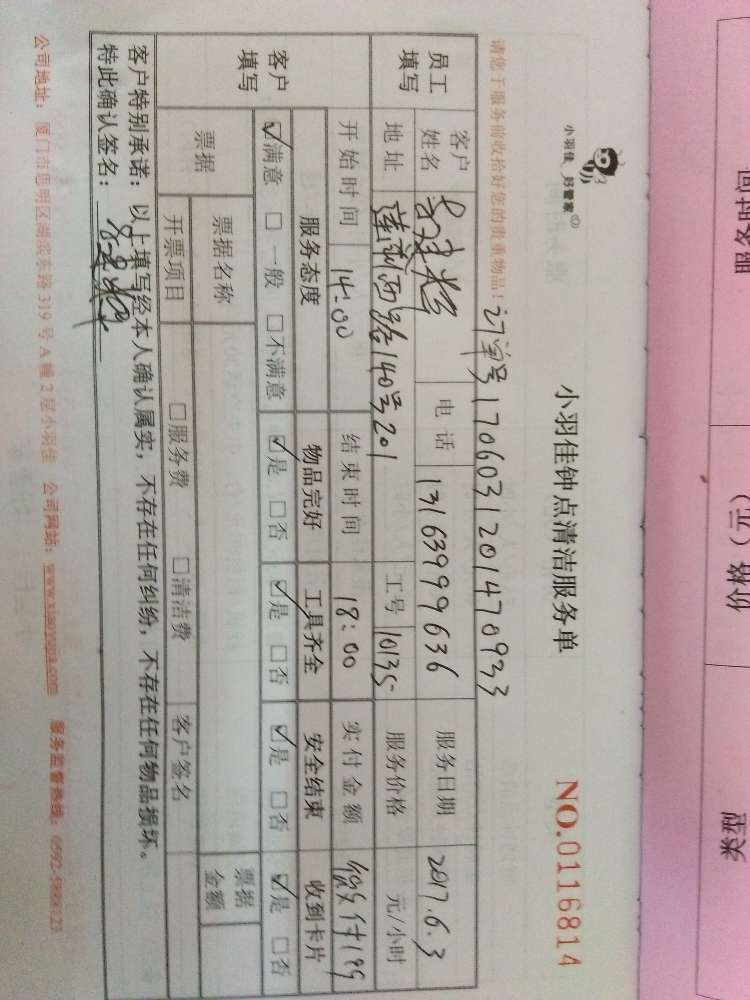 小羽佳 好管家
小羽佳钟点清洁服务单
NO.0116814
请您于服务前收拾好您的贵重物品!
订单号1706031201470933
员工填写
客户姓名
电话 13163999636
服务日期 2017.6.3
地址 莲前西路140号201
工号 10135
服务价格 元/小时
客户填写
开始时间 14:00
结束时间 18:00
实付金额
服务态度 物品完好 工具齐全 安全结束 收到卡片
☑满意 □一般 □不满意 ☑是 □否 ☑是 □否 ☑是 □否 ☑是 □否
票据
票据名称
票据金额
开票项目 □服务费 □清洁费 客户签名
客户特别承诺:以上填写经本人确认属实,不存在任何纠纷,不存在任何物品损坏。
特此确认签名:
公司地址:厦门市思明区湖滨东路319号A幢2层小羽佳 公司网站:www.xiaoyujia.com 服务监督热线:0592-5888123
服务时间
价格(元)
类型